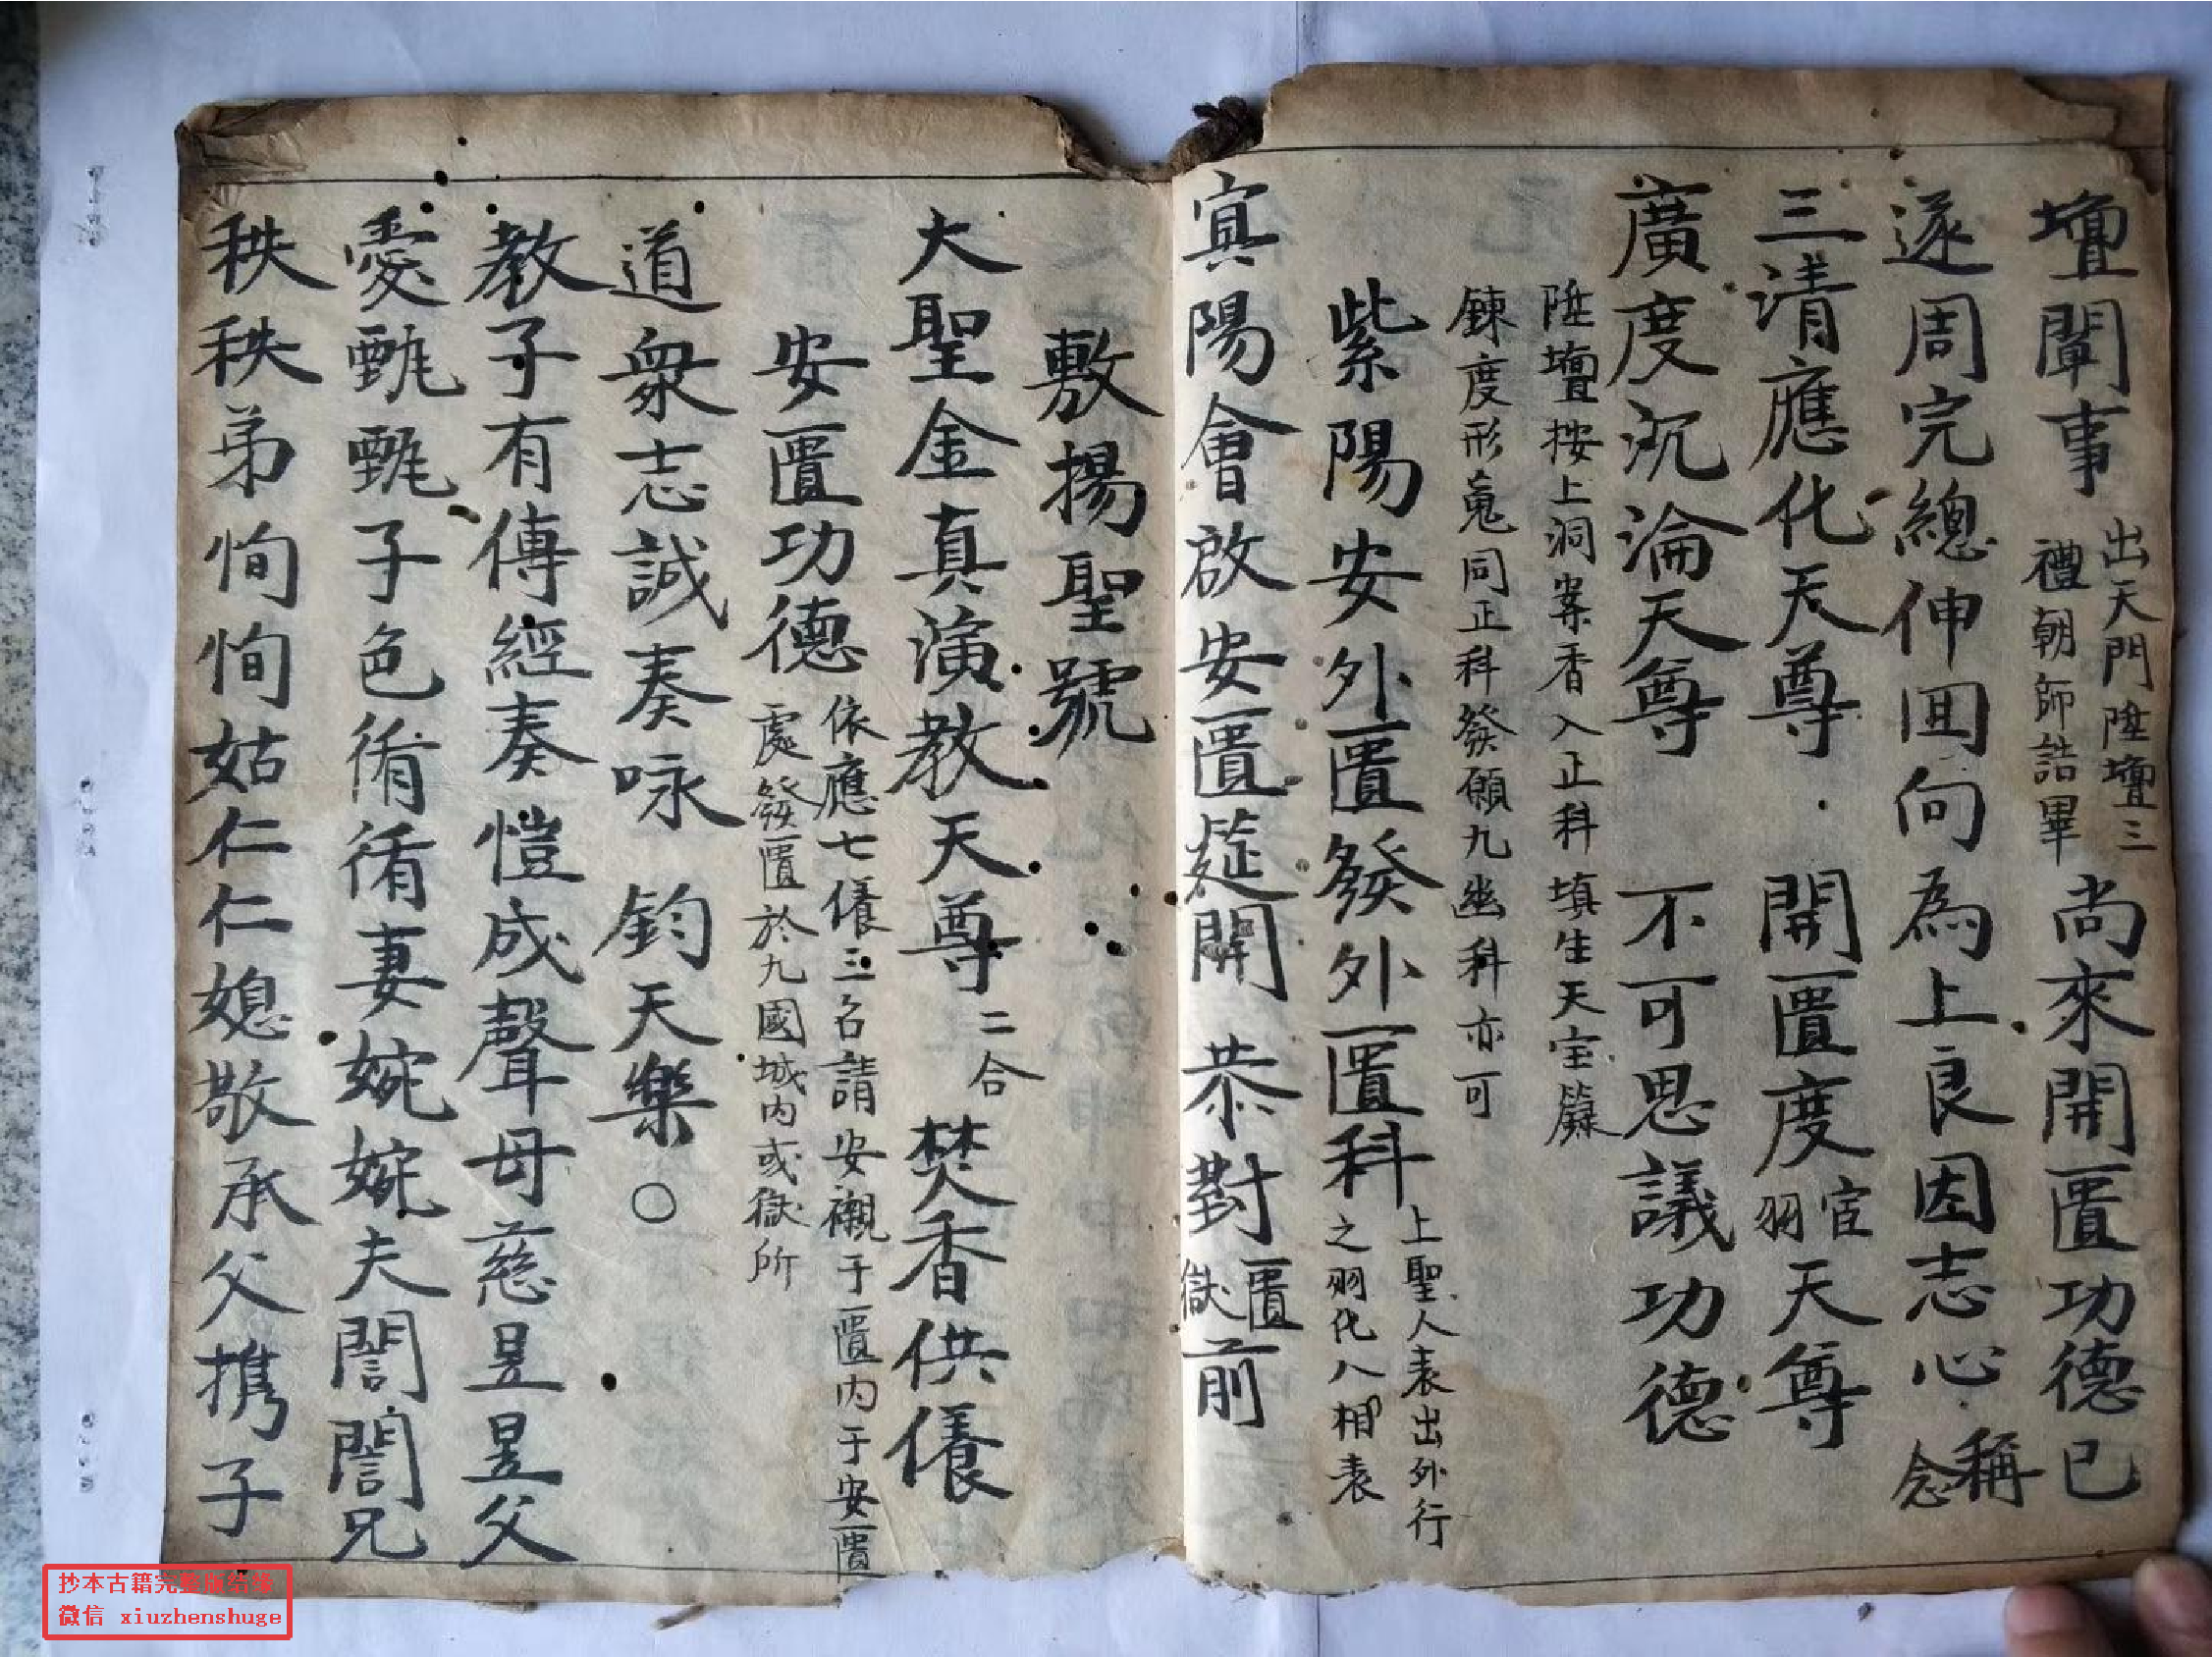 壇闈事 出天門陞壇三禮朝師誥畢 尚來開匱功德已
遂周完總伸囬向為上良因志心稱念
三清應化天尊 開匱度宦羽天尊
廣度沉淪天尊 不可思議功德
陞壇按上洞案香入正科填生天宝籙
鍊度形䰟同正科發願九幽科亦可
紫陽安外匱發外匱科 上聖人表出外行之羽化八相表
寘陽會啟安匱筵開 恭對匱獄前
敷揚聖號
大聖金真演教天尊 二合 焚香供養
安匱功德 依應七儀三名請安襯于匱内于安匱處發匱於九國城内或獄所
道衆志誠奏咏 鈞天樂○
教子有傳經奏愷成聲母慈昱昱父
愛甄甄子色侑侑妻婉婉夫誾誾兄
秩秩弟恂恂姑仁仁媳敬承父携子
抄本古籍完整版结缘
微信 xiuzhenshuge